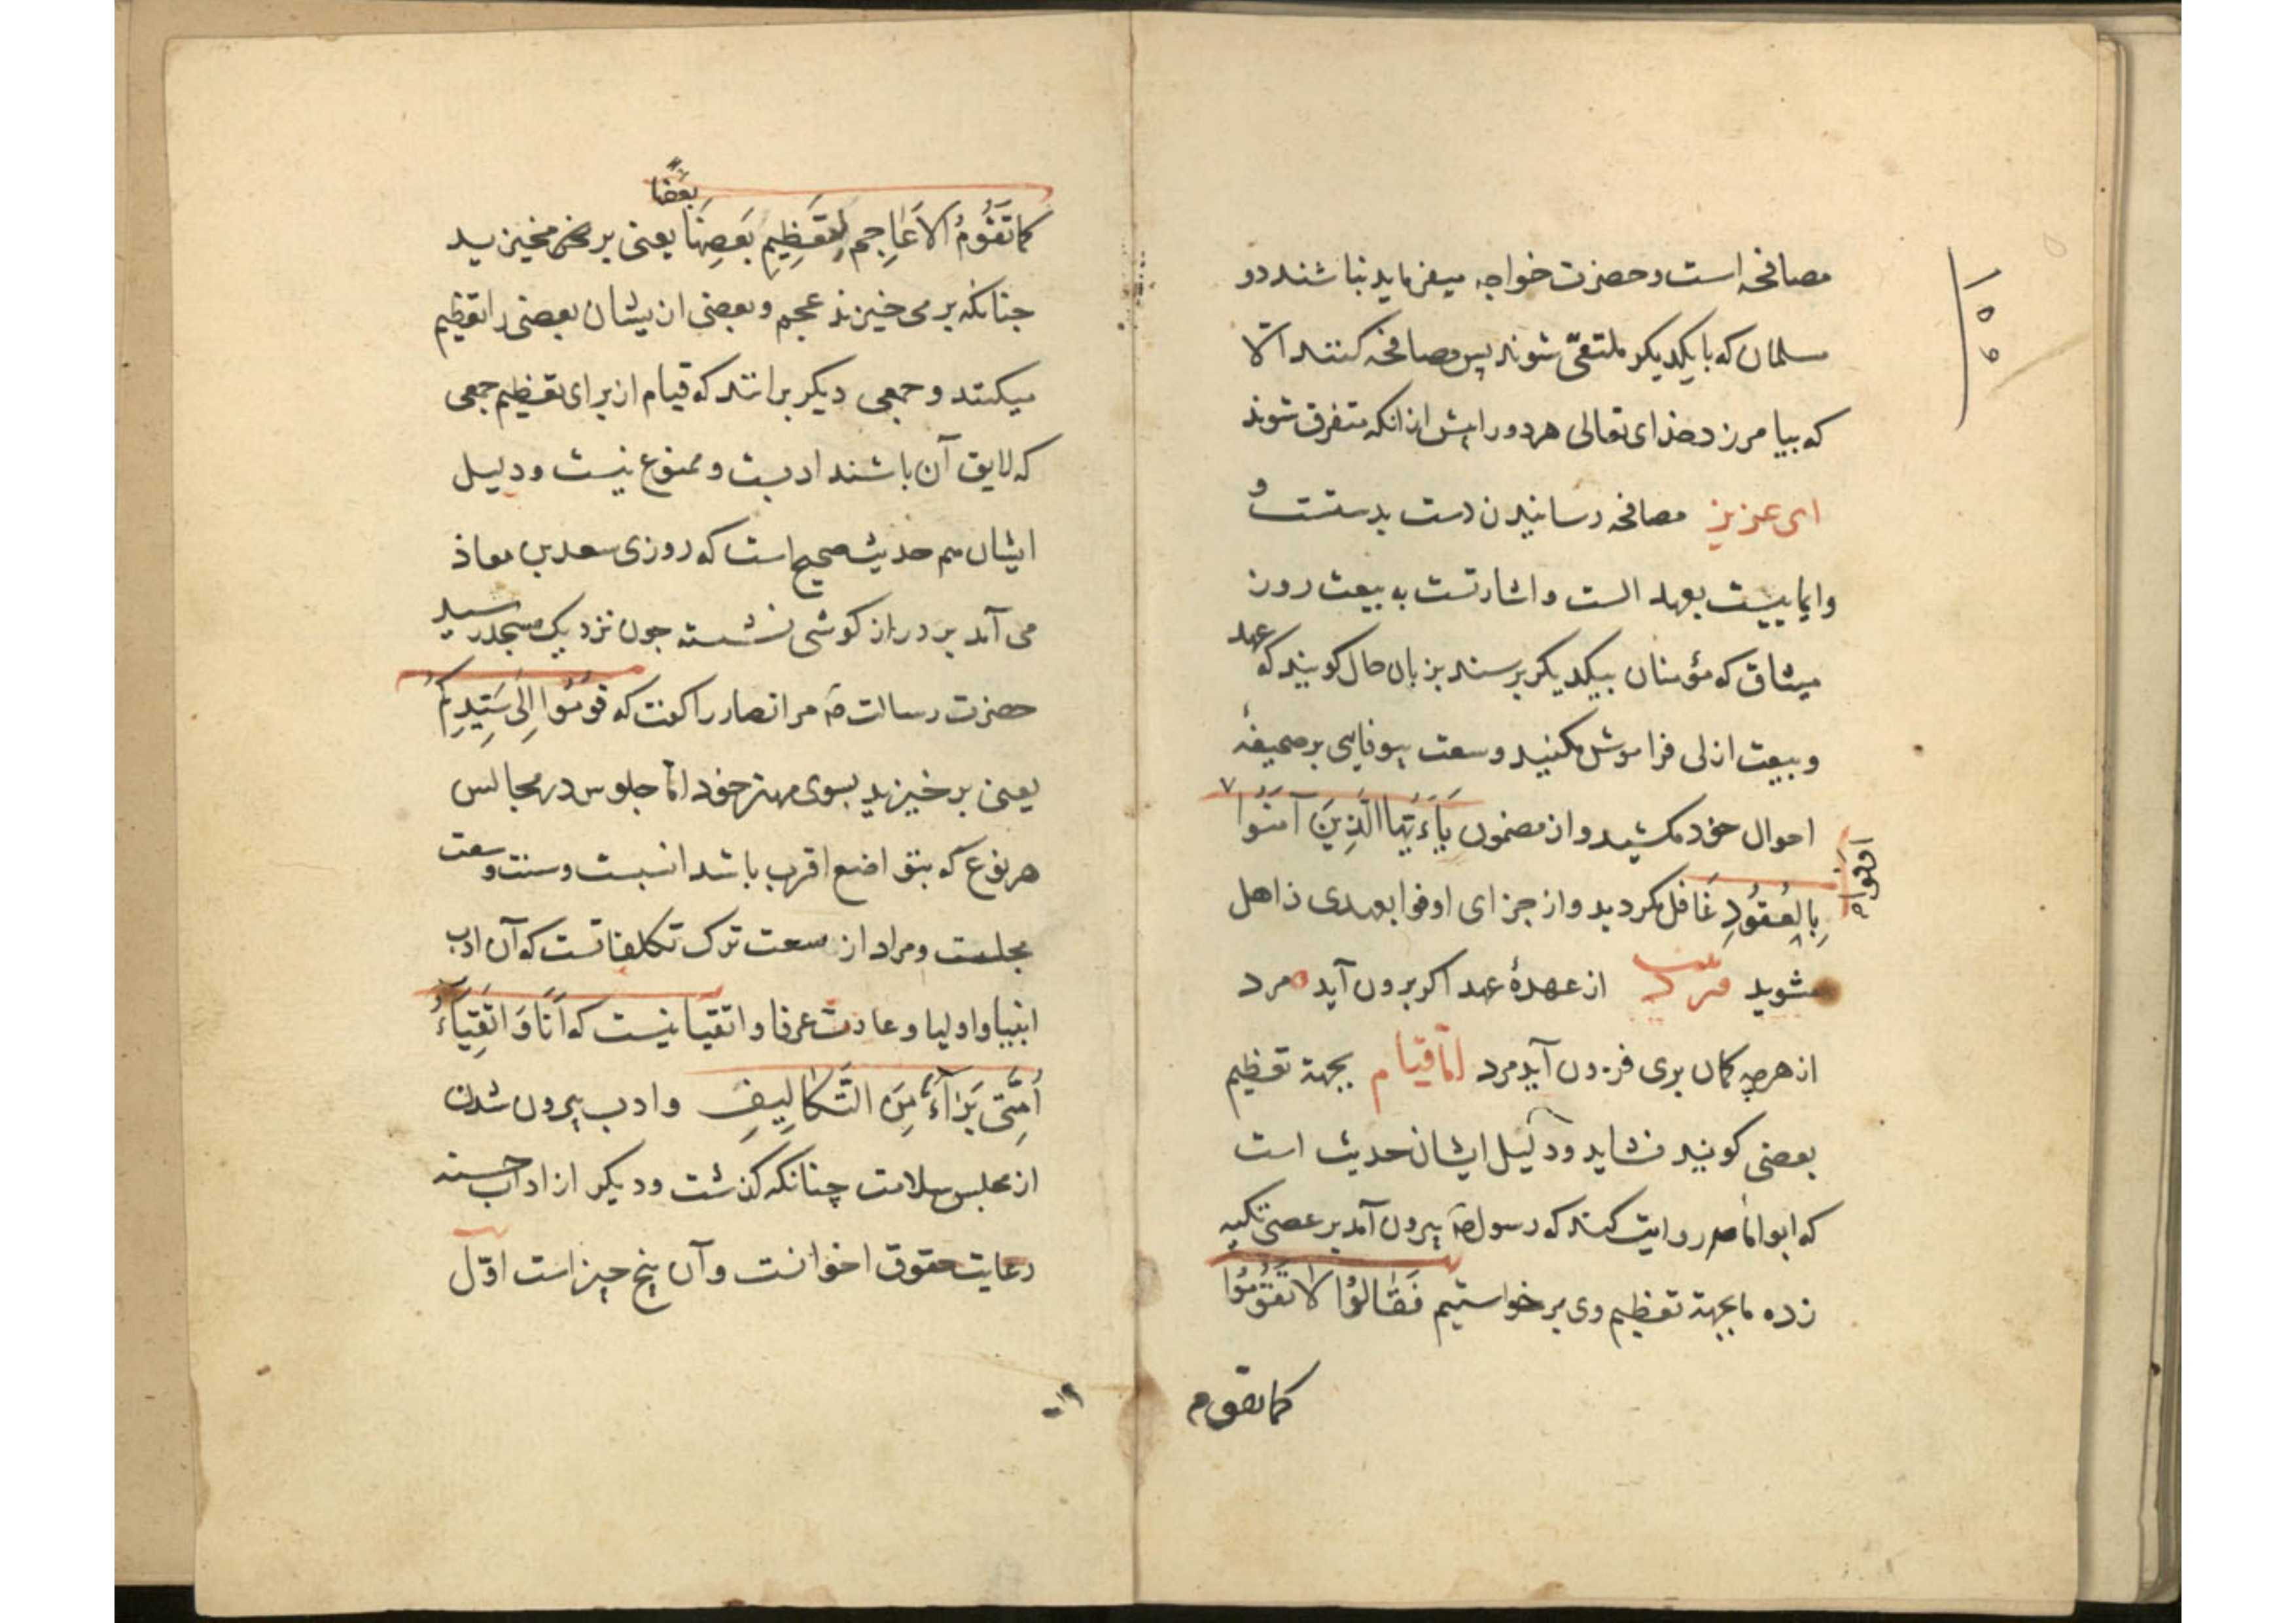 مصافحه است و حضرت خواجه میفرماید نباشند دو
مسلمان که با یکدیکر ملتقی شوند پس مصافحه کنند الّا
که بیامرزد خدای تعالی هر دو را پیش از انکه متفرق شوند
ای عزیز مصافحه رسانیدن دست بدستست و
وایماییست بعهد الست و اشارتست به بیعت روز
میثاق که مؤمنان بیکدیکر برسند بزبان حال کویند که عهد
و بیعت ازلی فراموش مکنید و سمت بیوفایی بر صحیفهٔ
احوال خود مکشید و از مضمون یَاءَیُّهَا الَّذِینَ آمَنُوا
اوفوا
بِالعُقُودِ غافل مکردید و از جزای اوفوا بعهدی ذاهل
مشوید از عهدهٔ عهد اکر برون آید مرد
از هرچه کمان بری فزون آید مرد امّا قیام بجهة تعظیم
بعضی کویند نشاید و دلیل ایشان حدیث است
که ابو امامه روایت کند که رسول صَ بیرون آمد بر عصی تکیه
زده ما بجهة تعظیم وی برخواستیم فَقَالُوا لَا تَقُومُوا
کما تقوم
۱۵۵
بَعْضًا
کَمَا تَقُومُ الاَعَاجِم لِتَعظِیمِ بَعضِهَا یعنی بر مخیزید
جنانکه بر می خیزند عجم و بعضی از یشان بعضی را تعظیم
میکنند و جمعی دیکر برانند که قیام از برای تعظیم جمعی
که لایق آن باشند ادبست و ممنوع نیست و دلیل
ایشان هم حدیث صحیح است که روزی سعد بن معاذ
می آمد بر دراز کوشی نشسته جون نزدیک مسجد رسید
حضرت رسالت صَ مر انصار را کفت که قُومُوا اِلَی سَیِّدِکُم
یعنی بر خیزید بسوی مهتر خود امّا جلوس در مجالس
هر نوع که بتواضع اقرب باشد انسبست و سنت وسعت
مجلست و مراد از سعت ترک تکلفاتست که آن ادب
انبیا و اولیا و عادت عرفا و اتقیا نیست که اَنَا وَ اَتقِیَاءُ
اُمَّتِی بَرَآءٌ مِنَ التَّکَالِیفِ و ادب بیرون شدن
از مجلس سلامت چنانکه کذشت و دیکر از اداب حسنه
رعایت حقوق اخوانست و آن پنج چیز است اوّل